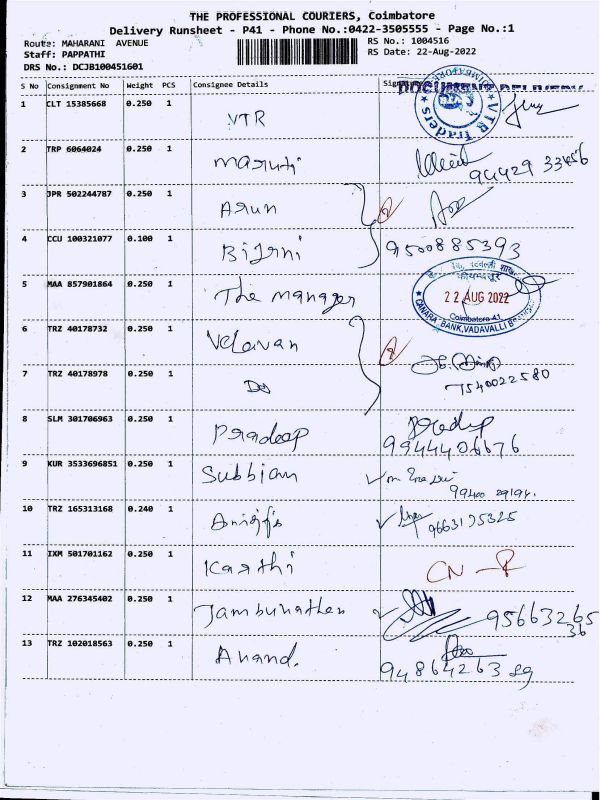 THE PROFESSIONAL COURIERS, Coimbatore
Delivery Runsheet - P41 - Phone No.:0422-3505555 - Page No.:1
Route: MAHARANI AVENUE RS No.: 1004516
Staff: PAPPATHI RS Date: 22-Aug-2022
DRS No.: DCJB100451601
S No Consignment No Weight PCS Consignee Details
DOCUMENT DELIVERY
1 CLT 15385668 0.250 1 VTR
VTR Traders
2 TRP 6064024 0.250 1 Maruti 94429 33456
3 JPR 502244787 0.250 1 Arun
4 CCU 100321077 0.100 1 9500885393
5 MAA 857901864 0.250 1 The manager
22 AUG 2022
Coimbatore-41
CANARA BANK, VADAVALLI
6 TRZ 40178732 0.250 1 Velavan
7 TRZ 40178978 0.250 1 Do 7540022580
8 SLM 301706963 0.250 1 Pradeep Pradeep
9944406676
9 KUR 3533696851 0.250 1 Subbian
10 TRZ 165313168 0.240 1
11 IXM 501701162 0.250 1 Karthi CN - R
12 MAA 276345402 0.250 1 Jambunathan 95663265
36
13 TRZ 102018563 0.250 1 Anand.
94864263 59